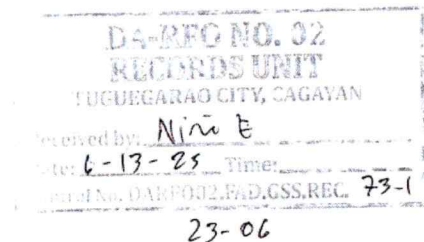 DA-RFO NO. 02
RECORDS UNIT
TUGUEGARAO CITY, CAGAYAN
Received by: Niño E
Date: 6-13-25 Time:
No. DARFO02.FAD.GSS.REC. 73-1
23-06